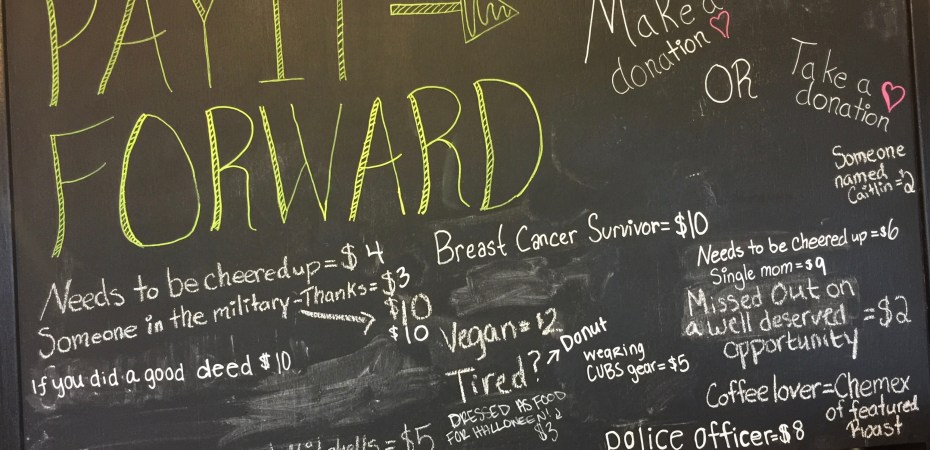 PAY IT
FORWARD
Make a
donation
OR
Take a
donation
Someone
named
Caitlin = $2
Breast Cancer Survivor = $10
Needs to be cheered up = $4
Someone in the military - Thanks = $3
$10
$10
If you did a good deed $10
Vegan = 12
Tired? Donut
wearing
CUBS gear = $5
DRESSED AS FOOD
FOR HALLOWEEN!
$3
= $5
Needs to be cheered up = $6
Single mom = $9
Missed Out on
a well deserved = $2
opportunity
Coffee lover = Chemex
of featured
Roast
police officer = $8